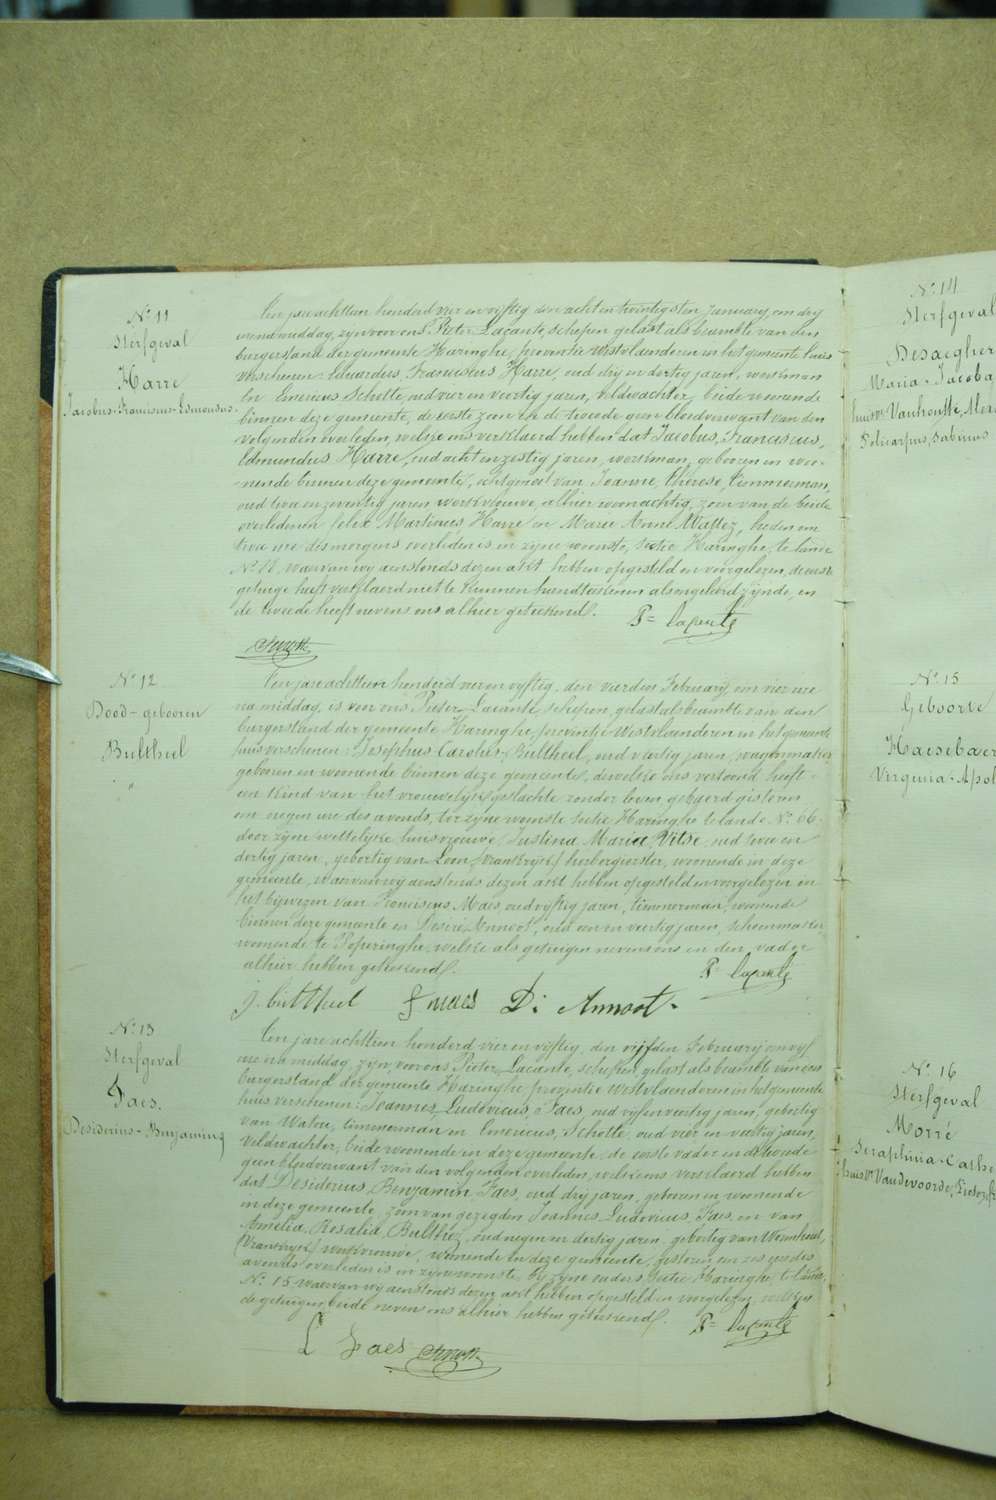 No. 11
Sterfgeval
Harre
Jacobus-Franciscus-Edmondus
Ten jare achttien honderd vier en vyftig den acht en twintigsten January, om dry
uren namiddag, zyn voor ons Pieter Lacante, schepen gelast als beambte van den
burgerstand der gemeente Haringhe, provintie Westvlaenderen in het gemeente huis
verschenen: Eduardus, Franciscus Harre, oud dry en dertig jaren, werkman
En Emericus Schotte, oud vier en veertig jaren, veldwachter, beide wonende
binnen deze gemeente, de eerste zoon en de tweede geen bloedverwant van den
volgenden overleden, welke ons verklaerd hebben dat Jacobus, Franciscus,
Edmundus Harre, oud acht en zestig jaren, werkman, geboren en woo-
-nende binnen deze gemeente, echtgenoot van Joanne, Therese, Timmerman,
oud twee en zeventig jaren werkvrouwe, alhier woonachtig, zoon van de beide
overledenen Felix Martinus Harre en Marie Anne Wattez, heden om
twee ure des morgens overleden is in zyne woonste, sectie Haringhe, te lande
No. 18, waervan wy aenstonds dezen akt hebben opgesteld en voorgelezen, de eerste
getuige heeft verklaerd niet te kunnen handteekenen als ongeleerd zynde, en
de tweede heeft nevens ons alhier geteekend.
Pre Lacante
Schotte
No. 12
Dood-gebooren
Bultheel
"
Ten jare achttien honderd vier en vyftig, den vierden February, om vier ure
na middag, is voor ons Pieter Lacante, schepen, gelast als beambte van den
burgerstand der gemeente Haringhe, provintie Westvlaenderen in het gemeente
huis verschenen: Josephus Carolus Bultheel, oud veertig jaren, wagenmaker
geboren en woonende binnen deze gemeente, dewelke ons vertoond heeft
een kind van het vrouwelyk geslachte zonder leven gebaerd gisteren
om negen ure des avonds, ter zyne woonste sectie Haringhe te lande No. 66
door zyne wettelyke huisvrouwe Justina Maria Vitse, oud twee en
dertig jaren, gebortig van Loon (Vrankryk) herbergierster, woonende in deze
gemeente, waervan wy aenstonds dezen akt hebben opgesteld en voorgelezen in
het bywezen van Franciscus Maes oud vyftig jaren, timmerman, woonende
binnen deze gemeente en Desiré Annoot, oud een en veertig jaren, schoenmaker,
woonende te Poperinghe, welke als getuigen nevens ons en den vader
alhier hebben geteekend.
Pre Lacante
J. bultheel F maes Di Annoot
No. 13
Sterfgeval
Faes.
Desiderius-Benjaming
Ten jare achttien honderd vier en vyftig, den vyfden February om vyf
ure na middag, zyn voor ons Pieter Lacante, schepen, gelast als beambte van den
burgerstand der gemeente Haringhe provintie Westvlaenderen in het gemeente
huis verschenen: Joannes Ludovicus Faes, oud vyf en veertig jaren, gebortig
van Watou, timmerman en Emericus, Schotte, oud vier en veertig jaren,
Veldwachter, beide woonende in deze gemeente, de eerste vader en de tweede
geen bloedverwant van den volgenden overleden, welke ons verklaerd hebben
dat Desiderius, Benjamin, Faes, oud dry jaren, geboren en woonende
in deze gemeente, zoon van gezegden Joannes, Ludovicus, Faes, en van
Amelia, Rosalia, Bulthez, oud negen en dertig jaren, gebortig van Wemhout,
(Vrankryk) werkvrouwe, woonende in deze gemeente, gisteren om zes ure des
avonds overleden is in zyne woonste, by zyne ouders, sectie Haringhe, te lande,
No. 15 waervan wy aenstonds dezen akt hebben opgesteld en voorgelezen, welke
de getuigen beide nevens ons alhier hebben geteekend.
Pre Lacante
L Faes Schotte
No. 14
Sterfgeval
Desaegher
Maria-Jacoba
huisve Vanhoutte,
Policarpus, Sabinus
No. 15
Geboorte
Haesebaer
Virginia-Apol
No. 16
Sterfgeval
Morré
Seraphina-Cathe
huisve Vandevoorde,